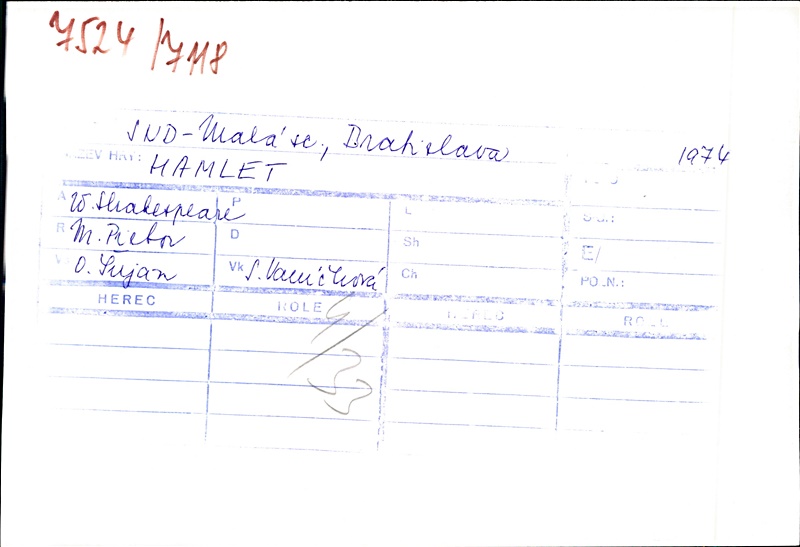 7524/7118
SND-Malá sc, Bratislava 1974
HAMLET
A W. Shakespeare P L
R M. Pietor D Sh E/
O. Šujan Vk S. Vaníčková Ch PO.N.:
HEREC ROLE